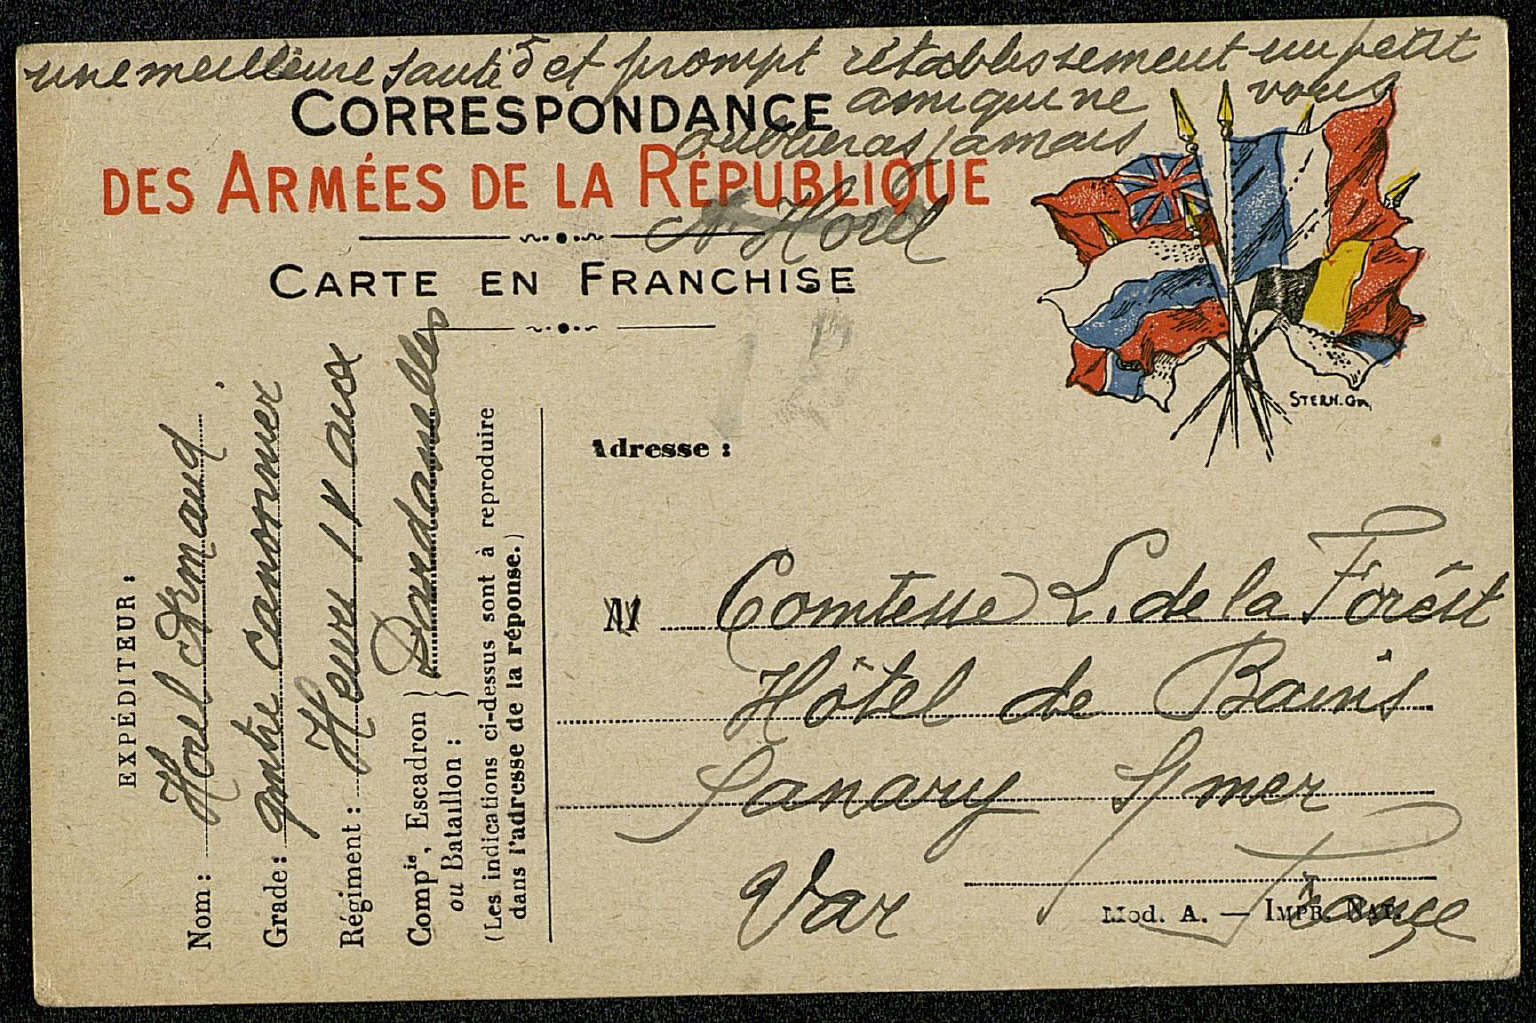 une meilleure santé et prompt rétablissement un petit
ami qui ne vous
oublieras jamais
A. Horel
CORRESPONDANCE
DES ARMÉES DE LA RÉPUBLIQUE
CARTE EN FRANCHISE
STERN. Gr.
EXPÉDITEUR :
Nom : Horel Armand
Grade : canonnier
Régiment : Henri IV aux
Compie, Escadron ou Bataillon : } Dardanelles
(Les indications ci-dessus sont à reproduire
dans l'adresse de la réponse.)
Adresse :
M Comtesse L. de la Forést
Hôtel de Bains
Sanary S/mer
Var France
Mod. A. — IMPR. NAT.